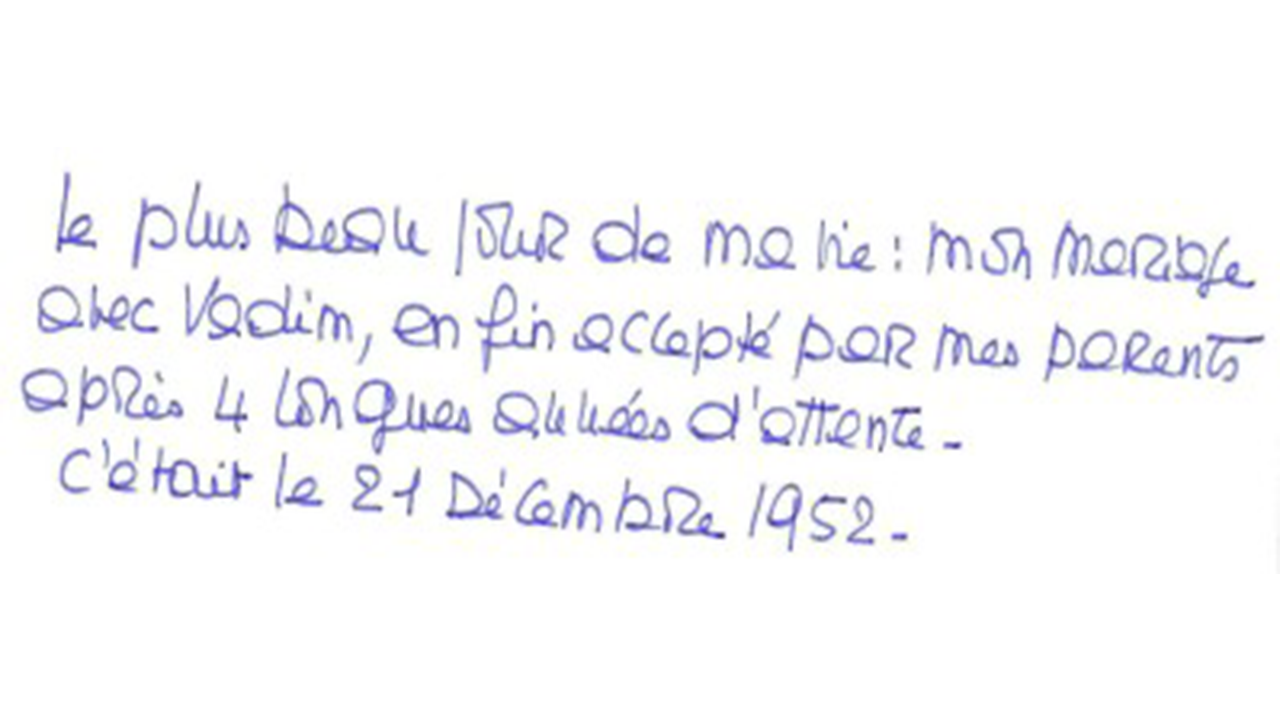 le plus beau jour de ma vie : mon mariage
avec Vadim, en fin accepté par mes parents
après 4 longues années d'attente -
C'était le 21 Décembre 1952 -